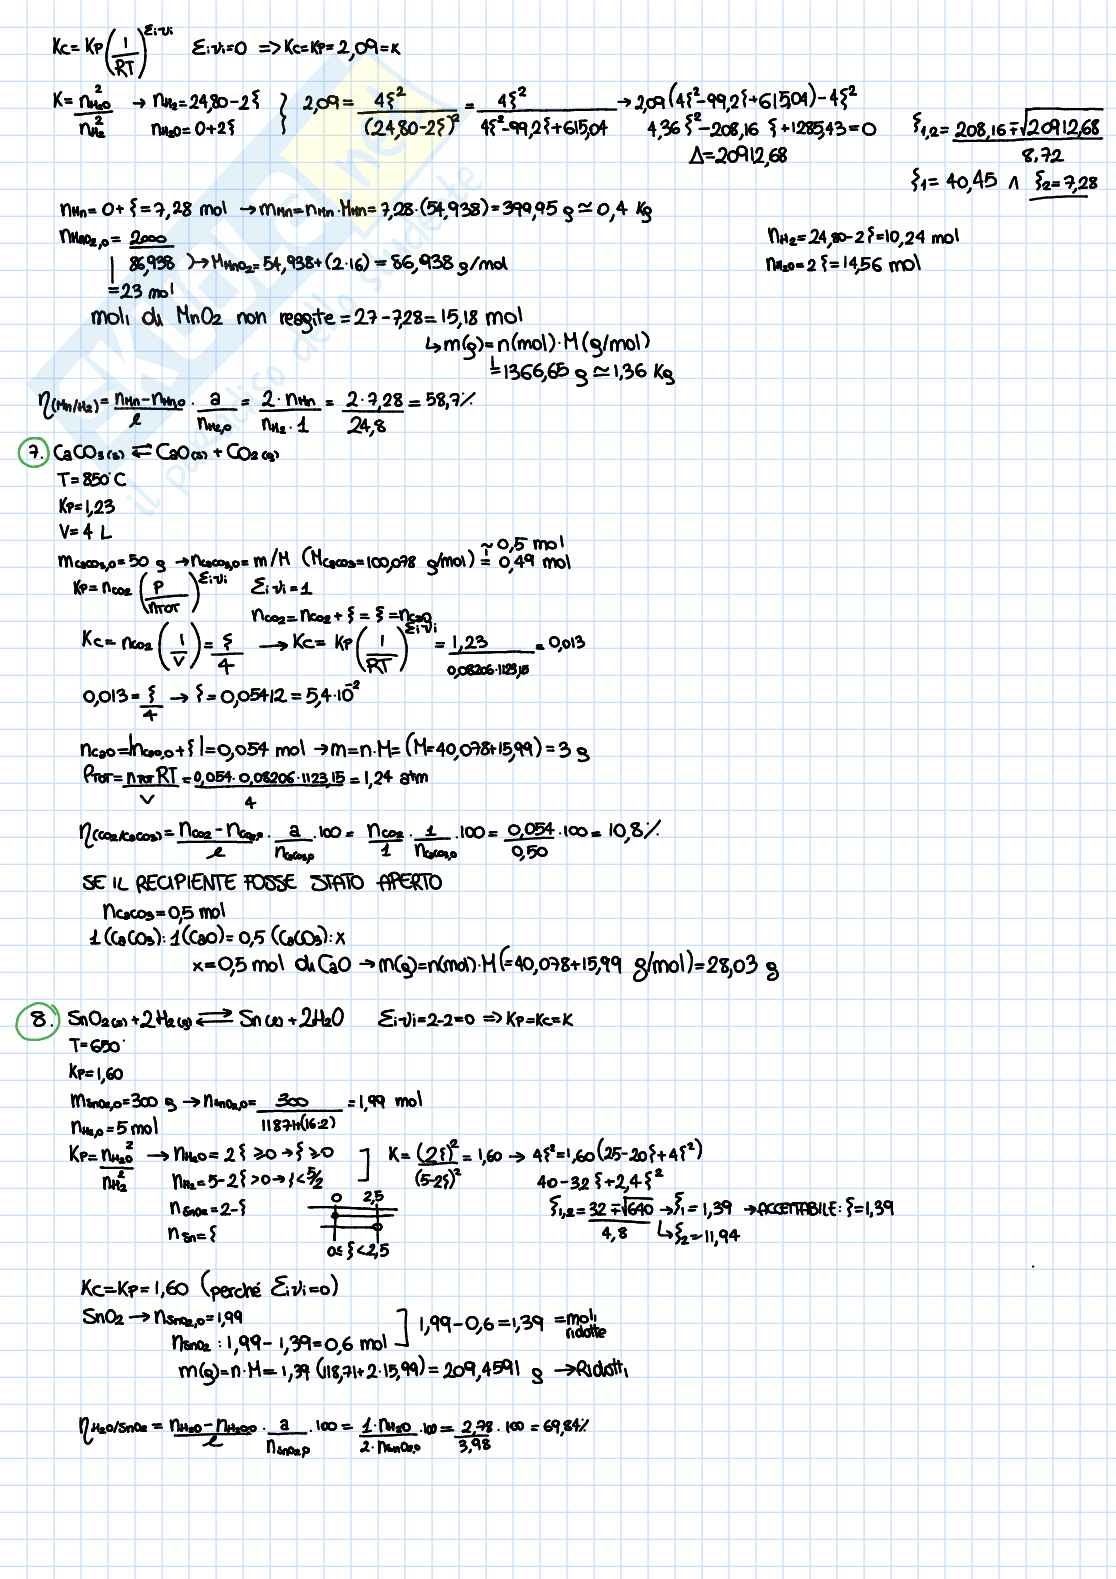 Kc = Kp (1/RT)^Σiνi   Σiνi=0 => Kc=Kp=2,09=K
K = n²H₂O/n²H₂ → nH₂=24,80-2ξ } 2,09 = 4ξ²/(24,80-2ξ)² = 4ξ²/4ξ²-99,2ξ+615,04 → 2,09(4ξ²-99,2ξ+615,04)-4ξ²
nH₂O=0+2ξ   4,36ξ²-208,16ξ+1285,43=0   ξ1,2 = 208,16∓√20912,68/8,72
Δ=20912,68
ξ1=40,45 ∧ ξ2=7,28
nMn=0+ξ=7,28 mol → mMn=nMn·MMn=7,28·(54,938)=399,95 g ≃ 0,4 Kg
nH₂=24,80-2ξ=10,24 mol
nMnO₂,0 = 2000/86,938 → MMnO₂=54,938+(2·16)=86,938 g/mol
nH₂O=2ξ=14,56 mol
=23 mol
moli di MnO2 non reagite=27-7,28=15,18 mol
↳ m(g)=n(mol)·M(g/mol)
=1366,65 g ≃ 1,36 Kg
η(Mn/H₂) = nMn-nMn,0/l · a/nH₂,0 = 2·nMn/nH₂·1 = 2·7,28/24,8 = 58,7%
7. CaCO3(s) ⇌ CaO(s) + CO2(g)
T=850°C
Kp=1,23
V=4 L
≃0,5 mol
mCaCO₃,0=50 g → nCaCO₃,0=m/M (MCaCO₃=100,078 g/mol) = 0,49 mol
Kp=nCO₂ (P/nTOT)^Σiνi   Σiνi=1
nCO₂=nCO₂+ξ=ξ=nCaO
Kc=nCO₂ (1/V) = ξ/4 → Kc=Kp (1/RT)^Σiνi = 1,23/0,08206·1123,15 = 0,013
0,013=ξ/4 → ξ=0,05412=5,4·10⁻²
nCaO=|nCaO,0+ξ|=0,054 mol → m=n·M=(M=40,078+15,99)=3 g
PTOT = nTOT RT/V = 0,054·0,08206·1123,15/4 = 1,24 atm
η(CO₂/CaCO₃) = nCO₂-nCO₂,0/l · a/nCaCO₃,0 ·100 = nCO₂/1 · 1/nCaCO₃,0 ·100 = 0,054/0,50 ·100 = 10,8%
SE IL RECIPIENTE FOSSE STATO APERTO
nCaCO₃=0,5 mol
1(CaCO3):1(CaO)=0,5(CaCO3):x
x=0,5 mol di CaO → m(g)=n(mol)·M(=40,078+15,99 g/mol)=28,03 g
8. SnO2(s)+2H2(g) ⇌ Sn(s)+2H2O   Σiνi=2-2=0 => Kp=Kc=K
T=650°
Kp=1,60
mSnO₂,0=300 g → nSnO₂,0 = 300/118,71+(16·2) = 1,99 mol
nH₂,0=5 mol
Kp = n²H₂O/n²H₂ → nH₂O=2ξ≥0→ξ≥0 ] K = (2ξ)²/(5-2ξ)² = 1,60 → 4ξ²=1,60(25-20ξ+4ξ²)
nH₂=5-2ξ>0→ξ<5/2   40-32ξ+2,4ξ²
nSnO₂=2-ξ   0   2,5   ξ1,2 = 32∓√640/4,8 → ξ1=1,39 → ACCETTABILE: ξ=1,39
nSn=ξ   0≤ξ<2,5   ↳ ξ2=11,94
Kc=Kp=1,60 (perché Σiνi=0)
SnO2 → nSnO₂,0=1,99
nSnO₂: 1,99-1,39=0,6 mol ] 1,99-0,6=1,39 = moli ridotte
m(g)=n·M=1,39(118,71+2·15,99)=209,4591 g → Ridotti
ηH₂O/SnO₂ = nH₂O-nH₂O,0/l · a/nSnO₂,0 ·100 = 1·nH₂O/2·nSnO₂,0 ·100 = 2,78/3,98 ·100 = 69,84%
SKUOLA.net
il paradiso dello studente